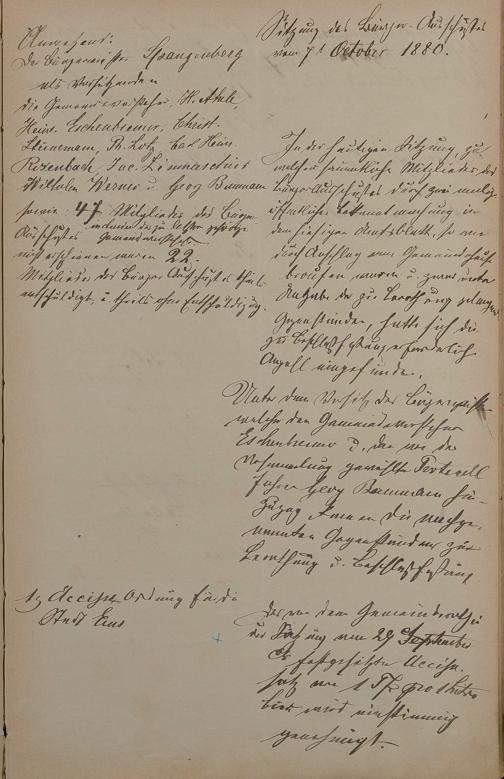 Anwesend:
Der Bürgermeister Spangenberg
als Vorsitzender
die Gemeindevorsteher, H.
Heinr. Eschenbrenner, Christ.
Ph. Lotz, Carl Heinr.
Jac. Linnarsheim
Wilhelm Werner u. Georg Baumann
sowie: 47 Mitglieder des Bürger
Ausschusses
nicht erschienen waren 22
Mitglieder des Bürger Ausschusses theils
entschuldigt, u. theils ohne Entschuldigung.
Sitzung des Bürger-Ausschusses
vom 7t October 1880.
In der heutigen Sitzung, zu
welcher sämmtliche Mitglieder des
Bürger Ausschusses durch zwei malige
öffentliche Bekanntmachung in
dem hiesigen Amtsblatt, so wie
durch Anschlag am Gemeindehaus
berufen waren u. zwar unter
Angabe der zur Berathung gelangenden
Gegenstände, hatte sich die
zur Beschlußfassung erforderliche
Anzahl eingefunden.
Unter dem Vorsitz des Bürgermeisters
welcher den Gemeindevorsteher
Eschenbrenner u. den von der
Versammlung gewählten
Georg Baumann hin-
zuzog kamen die nachge-
nannten Gegenstände zur
Berathung u. Beschlußfassung
1, Accise Ordnung für die
Stadt Ems
Der von dem Gemeinderath in
der Sitzung vom 29 September
festgesetzte Accise-
satz von 1 Pf pro Liter
bier wird einstimmig
genehmigt.